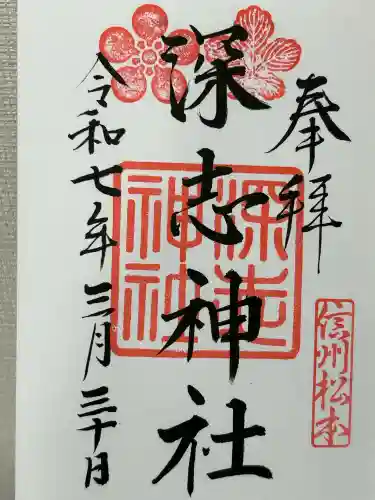 奉拝
深志神社
令和七年三月三十日
深志神社
信州松本